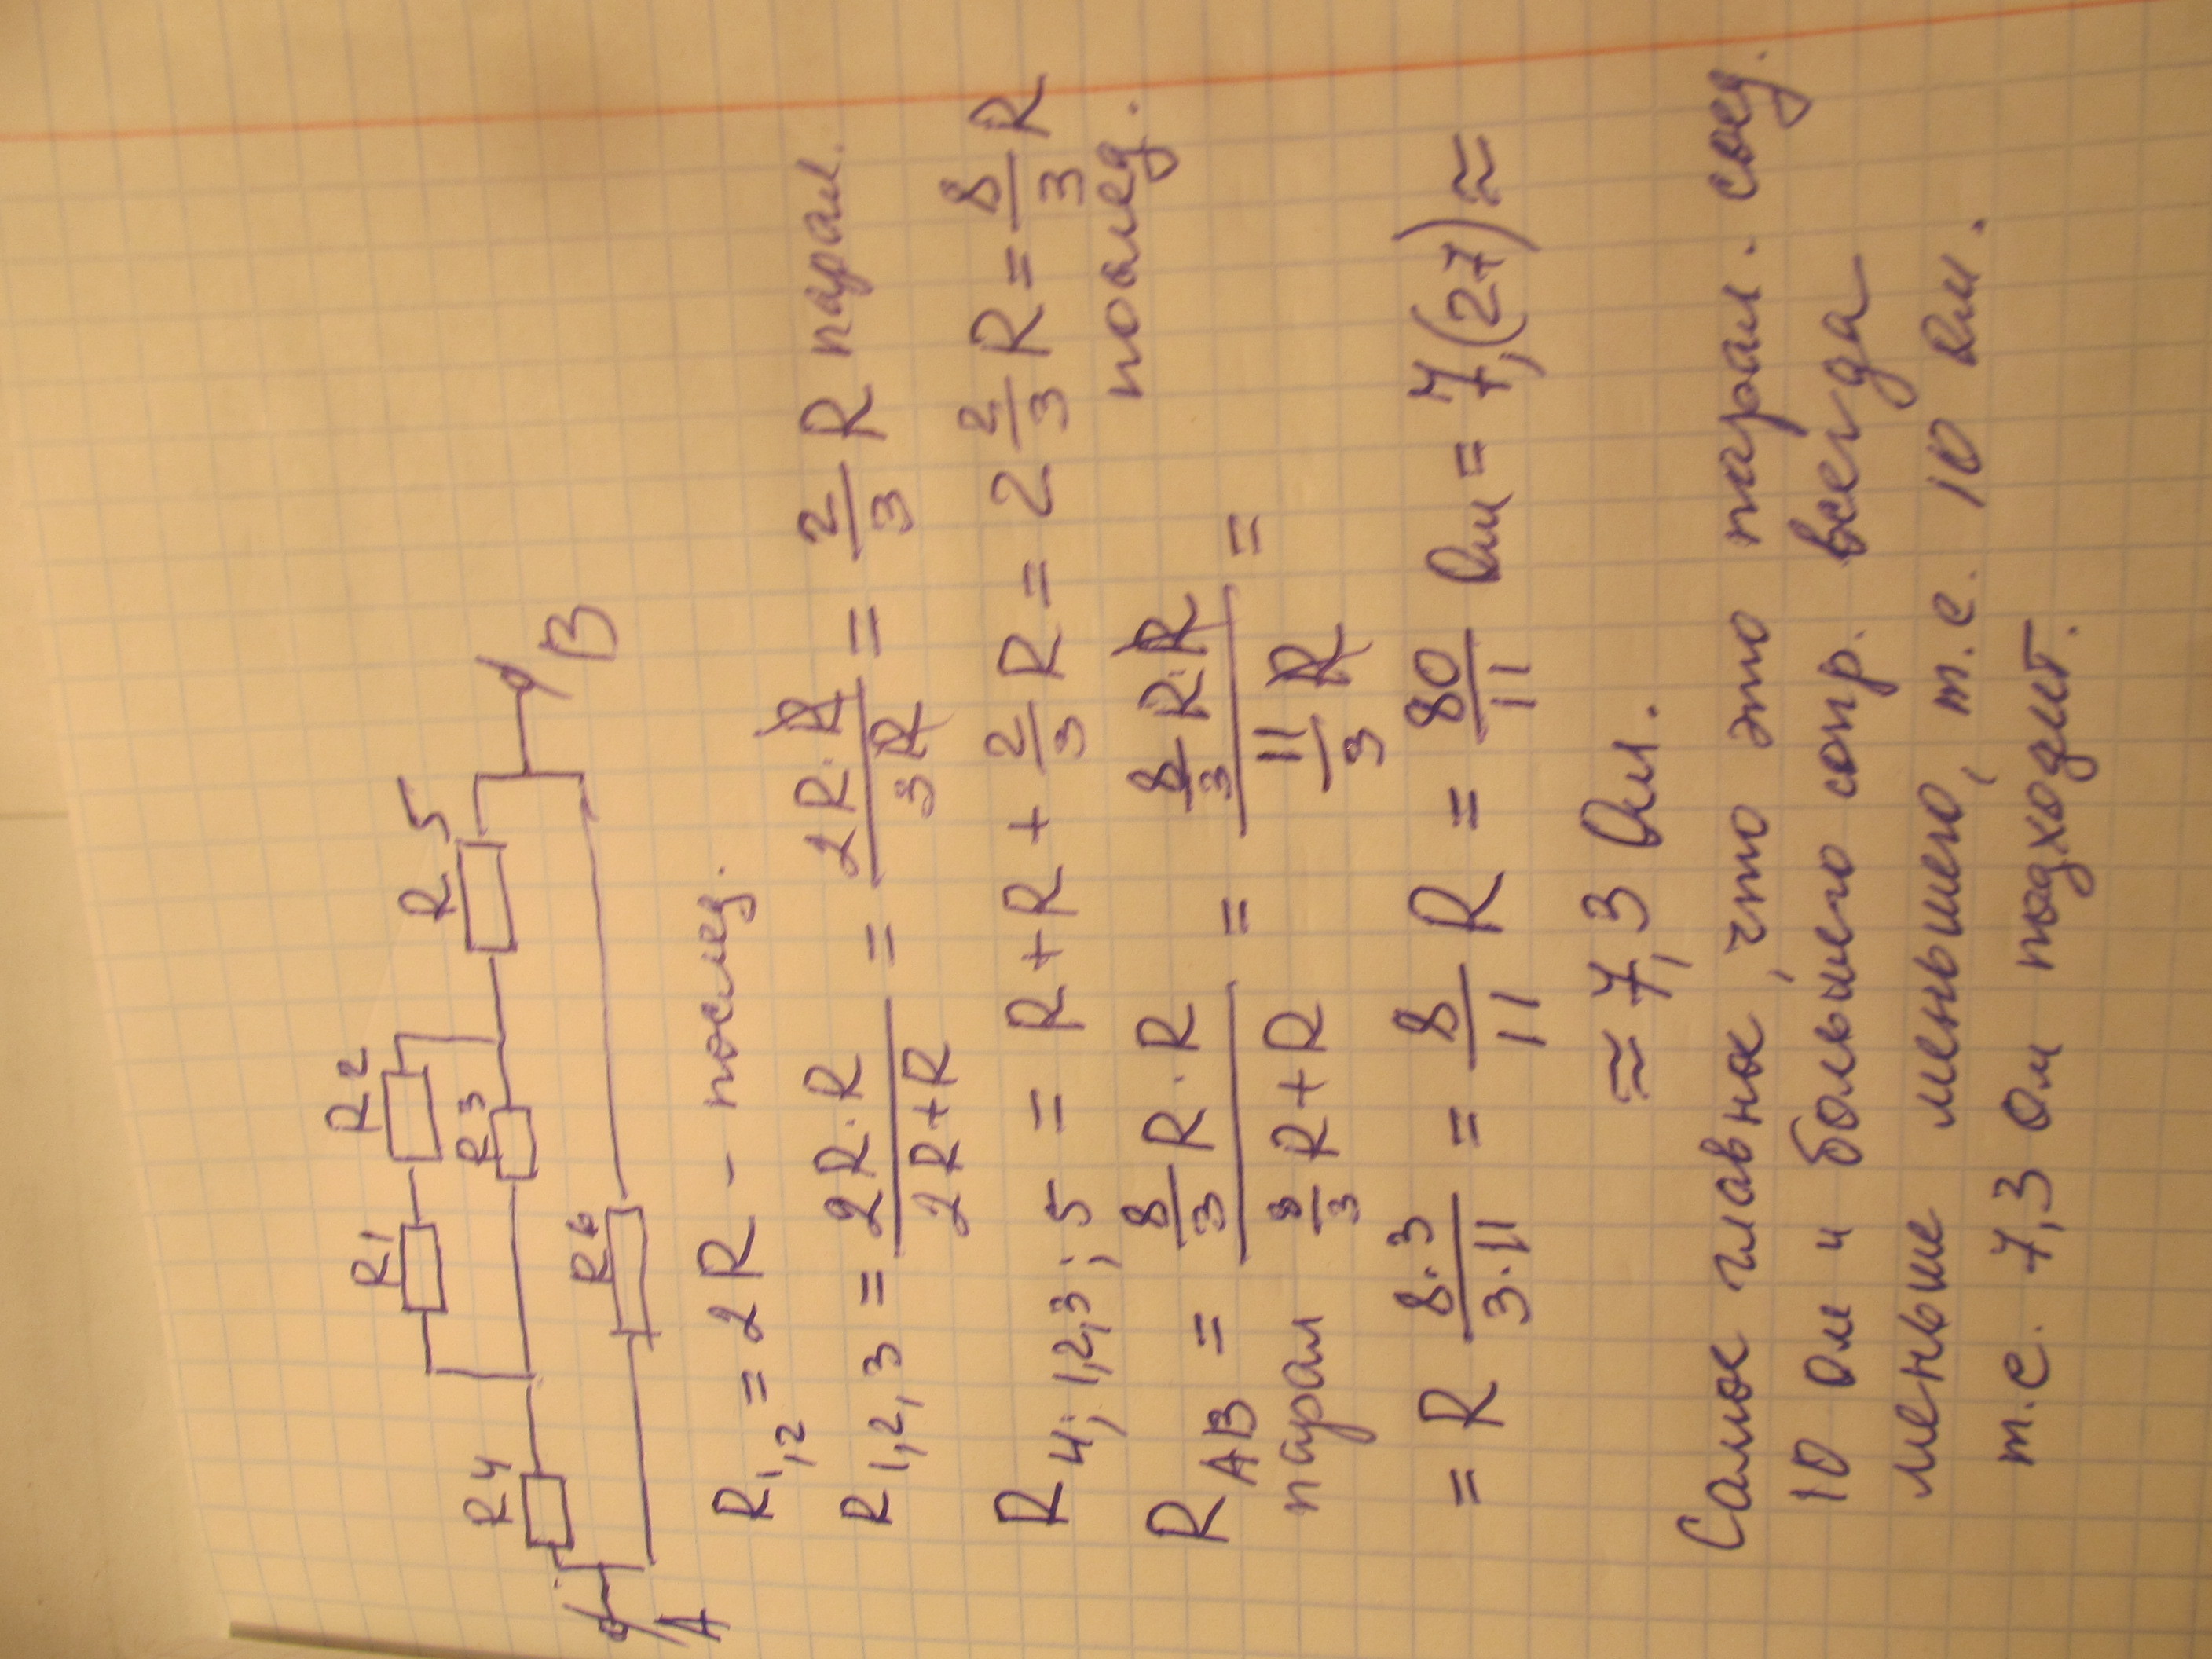 R1 R2
R3 R5
R4
R6
A B
R1,2 = 2R - послед.
R1,2,3 = 2R·R/2R+R = 2R·R/3R = 2/3 R парал.
R4;1,2,3;5 = R+R+2/3 R = 2 2/3 R = 8/3 R
послед.
RAB = 8/3 R·R / 8/3 R+R = 8/3 R·R / 11/3 R =
парал
= R 8·3/3·11 = 8/11 R = 80/11 Ом = 7,(27) ≈
≈ 7,3 Ом.
Самое главное, что это парал. соед.
10 Ом и большего сопр. всегда
меньше меньшего, т.е. 10 Ом.
т.е. 7,3 Ом подходит.